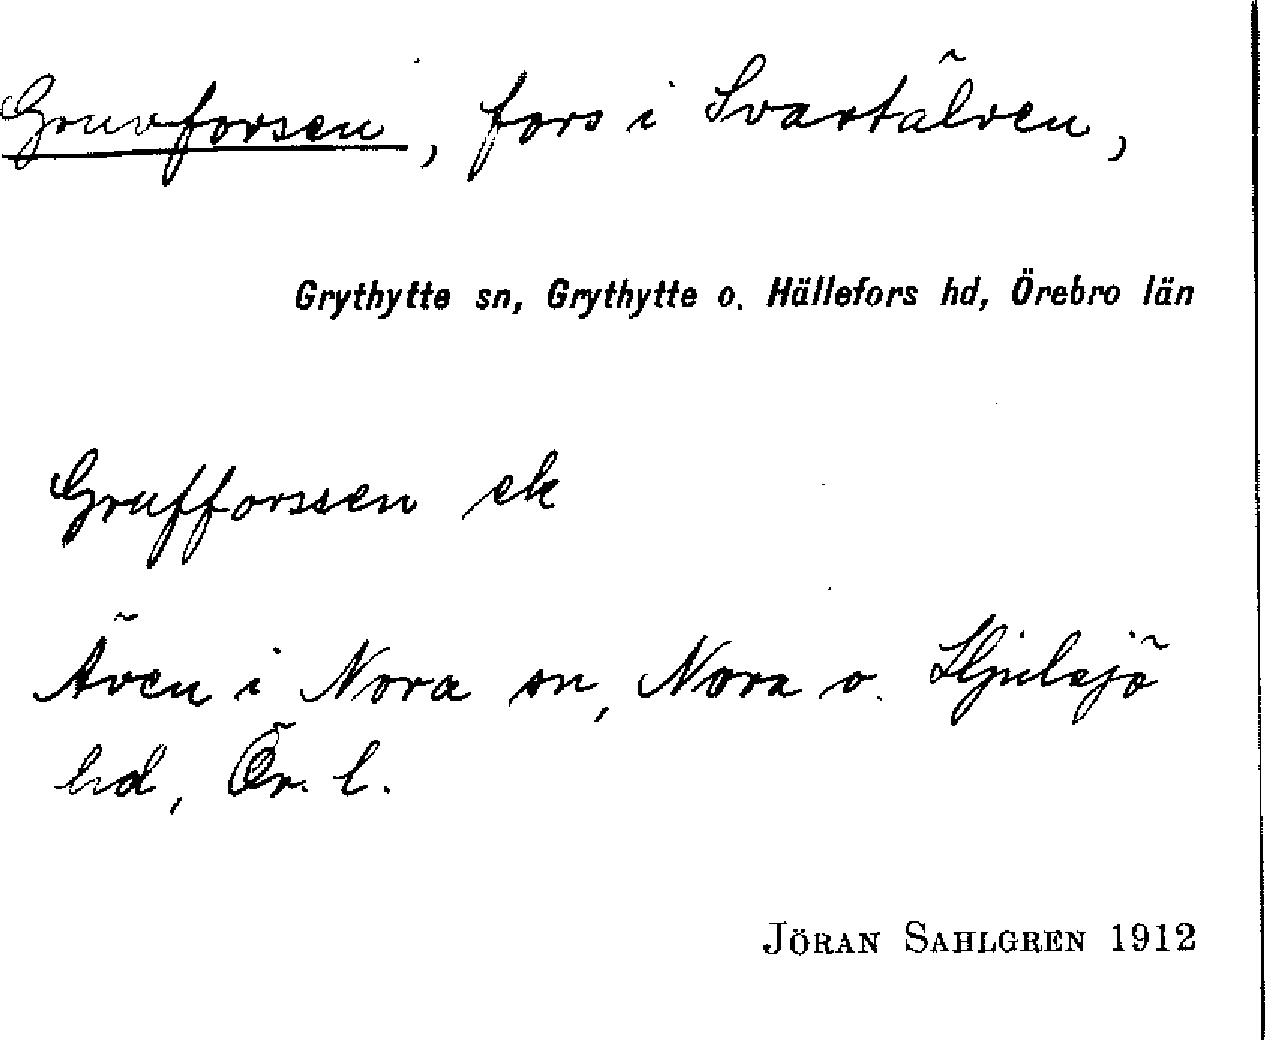 Gruvforsen, fors i Svartälven,
Grythytte sn, Grythytte o. Hällefors hd, Örebro län
Grufforssen ek
Även i Nora sn, Nora o. Hjulsjö
hd, Ör. l.
JÖRAN SAHLGREN 1912